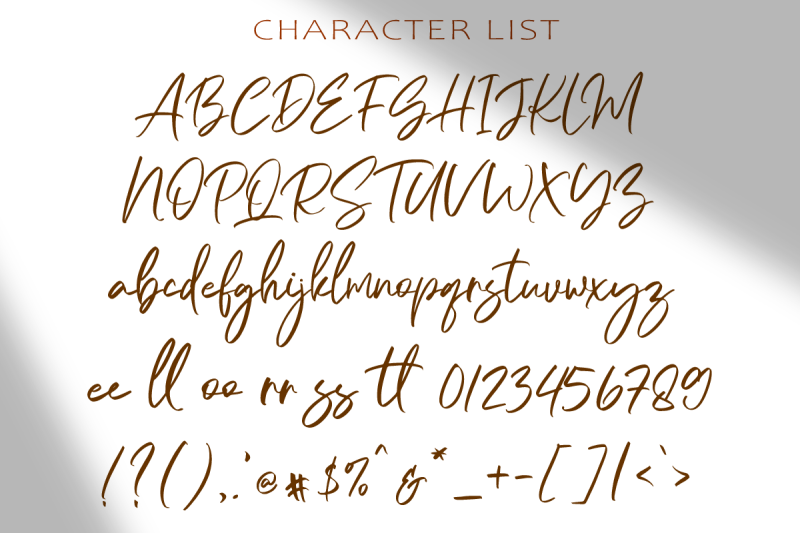 CHARACTER LIST
ABCDEFGHIJKLM
NOPQRSTUVWXYZ
abcdefghijklmnopqrstuvwxyz
ee ll oo rr ss tt 0123456789
!?(),.:'@#$%^&*_+-[]/|<`>